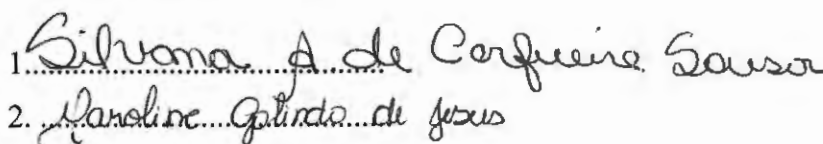 1. Silvana A de Cerqueira Sousa
2. Karoline Galindo de Jesus